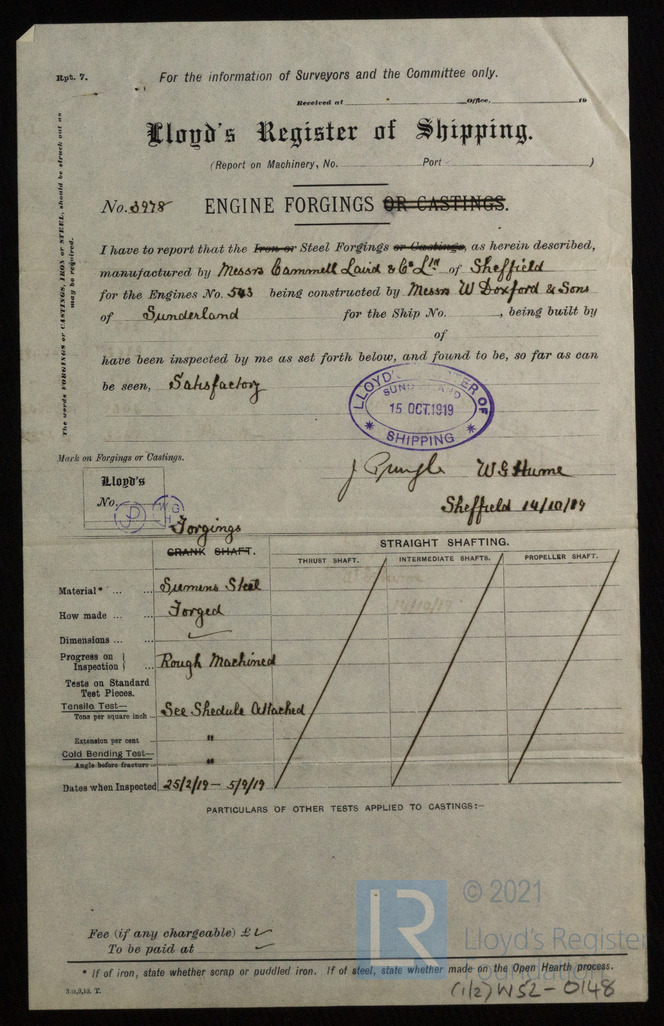 Rpt. 7.
For the information of Surveyors and the Committee only.
Received at Office, 19
Lloyd's Register of Shipping.
(Report on Machinery, No. Port )
No. 3978 ENGINE FORGINGS OR CASTINGS.
The words FORGINGS or CASTINGS, IRON or STEEL, should be struck out as
may be required.
I have to report that the Iron or Steel Forgings or Castings, as herein described,
manufactured by Messrs Cammell Laird & Co Ld of Sheffield
for the Engines No. 543 being constructed by Messrs W Doxford & Sons
of Sunderland for the Ship No. , being built by
of
have been inspected by me as set forth below, and found to be, so far as can
be seen, Satisfactory
LLOYD'S REGISTER OF
SUNDERLAND
15 OCT.1919
SHIPPING
Mark on Forgings or Castings.
Lloyd's
No.
JP
W.G
H
J Pringle W G Hume
Sheffield 14/10/19
Forgings
CRANK SHAFT.
STRAIGHT SHAFTING.
THRUST SHAFT. INTERMEDIATE SHAFTS. PROPELLER SHAFT.
Material* ... ... Siemens Steel
How made ... ... Forged
Dimensions ... ...
Progress on
Inspection } ... Rough Machined
Tests on Standard
Test Pieces.
Tensile Test—
Tons per square inch See Shedule Attached
Extension per cent "
Cold Bending Test—
Angle before fracture "
Dates when Inspected 25/2/19 – 5/9/19
PARTICULARS OF OTHER TESTS APPLIED TO CASTINGS:—
Fee (if any chargeable) £
To be paid at
* If of iron, state whether scrap or puddled iron. If of steel, state whether made on the Open Hearth process.
(1/2) W52-0148
LR
© 2021
Lloyd's Register
Foundation